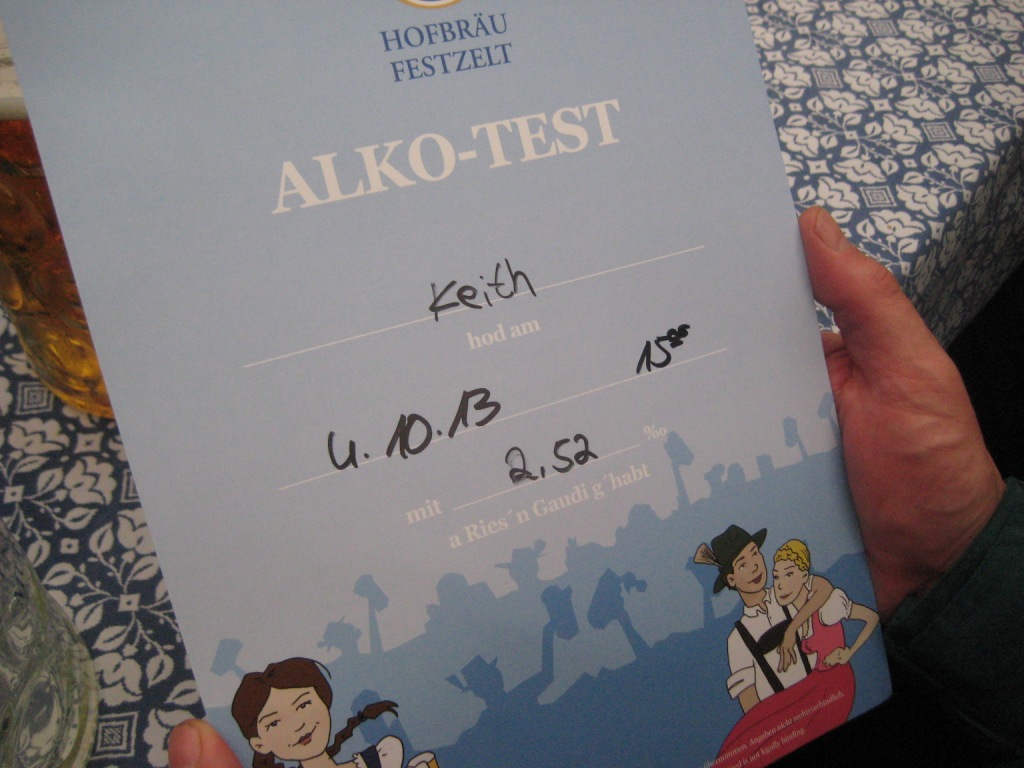 HOFBRÄU
FESTZELT
ALKO-TEST
Keith
hod am
4.10.13 15
mit 2,52 ‰
a Ries´n Gaudi g´habt
übernommen. Angaben nicht rechtsverbindlich.
is not legally binding.